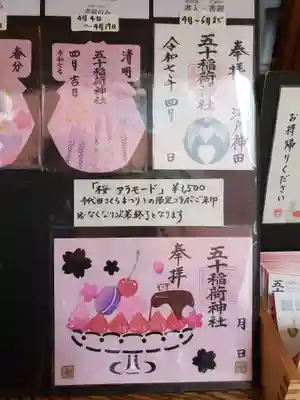 4月4日
〜4月19日
4月〜6月まで
春分
令和七年
四月吉日
五十稲荷神社
清明
令和七年 四月 日
五十稲荷神社
奉拝
江戸神田
お持ち帰りください
「桜 アラモード」 ¥1,500
千代田さくらまつりとの限定コラボご朱印
なくなり次第終了となります
奉拝
五十稲荷神社
月 日